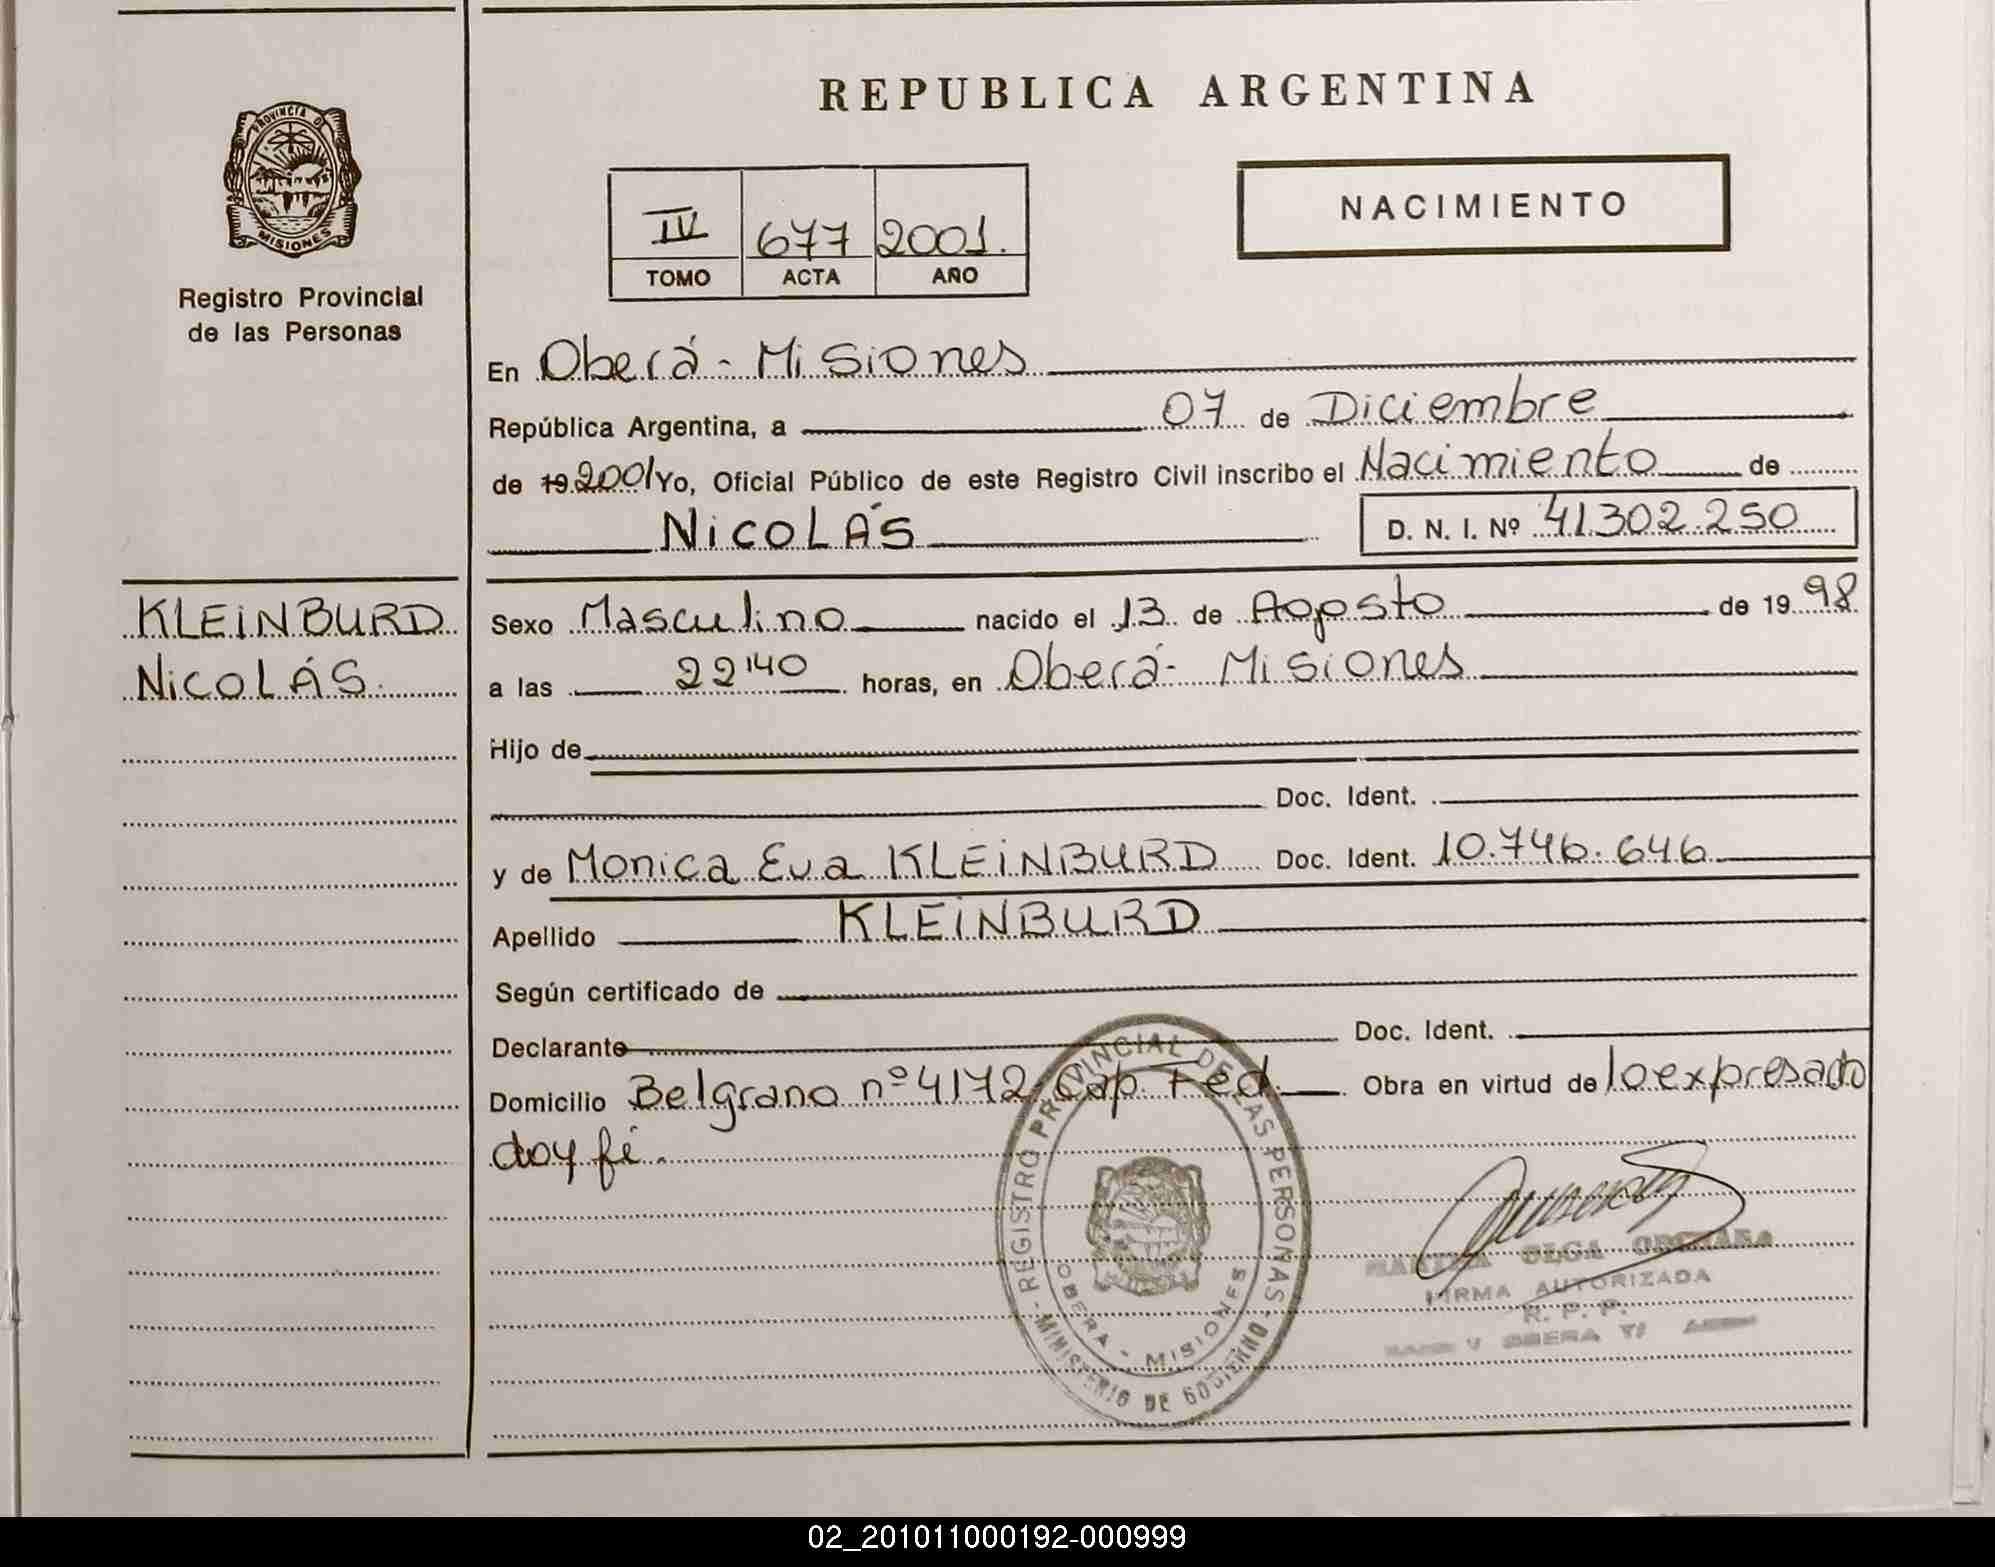 PROVINCIA DE
MISIONES
Registro Provincial
de las Personas
KLEINBURD
NICOLÁS.
REPUBLICA ARGENTINA
IV 677 2001.
TOMO ACTA AÑO
NACIMIENTO
En Oberá - Misiones
República Argentina, a 07 de Diciembre
de 19 2001 Yo, Oficial Público de este Registro Civil inscribo el Nacimiento de
NICOLÁS D. N. I. Nº 41.302.250
Sexo Masculino nacido el 13 de Agosto de 19 98
a las 22'40 horas, en Oberá - Misiones
Hijo de
Doc. Ident.
y de Monica Eva KLEINBURD Doc. Ident. 10.746.646
Apellido KLEINBURD
Según certificado de
Declarante Doc. Ident.
Domicilio Belgrano nº 4172 Cap. Fed. Obra en virtud de lo expresado
doy fé.
REGISTRO PROVINCIAL DE LAS PERSONAS
MINISTERIO DE GOBIERNO
OBERA - MISIONES
OLGA
FIRMA AUTORIZADA
R. P. P.
OBERA
02_201011000192-000999